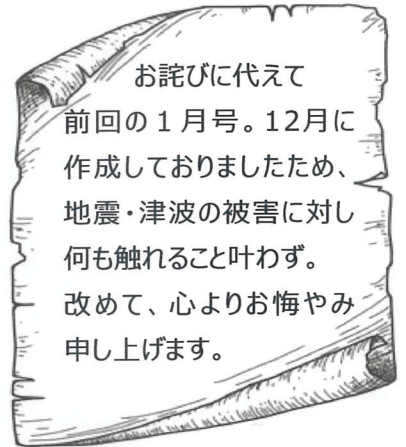 お詫びに代えて
前回の１月号。12月に
作成しておりましたため、
地震・津波の被害に対し
何も触れること叶わず。
改めて、心よりお悔やみ
申し上げます。